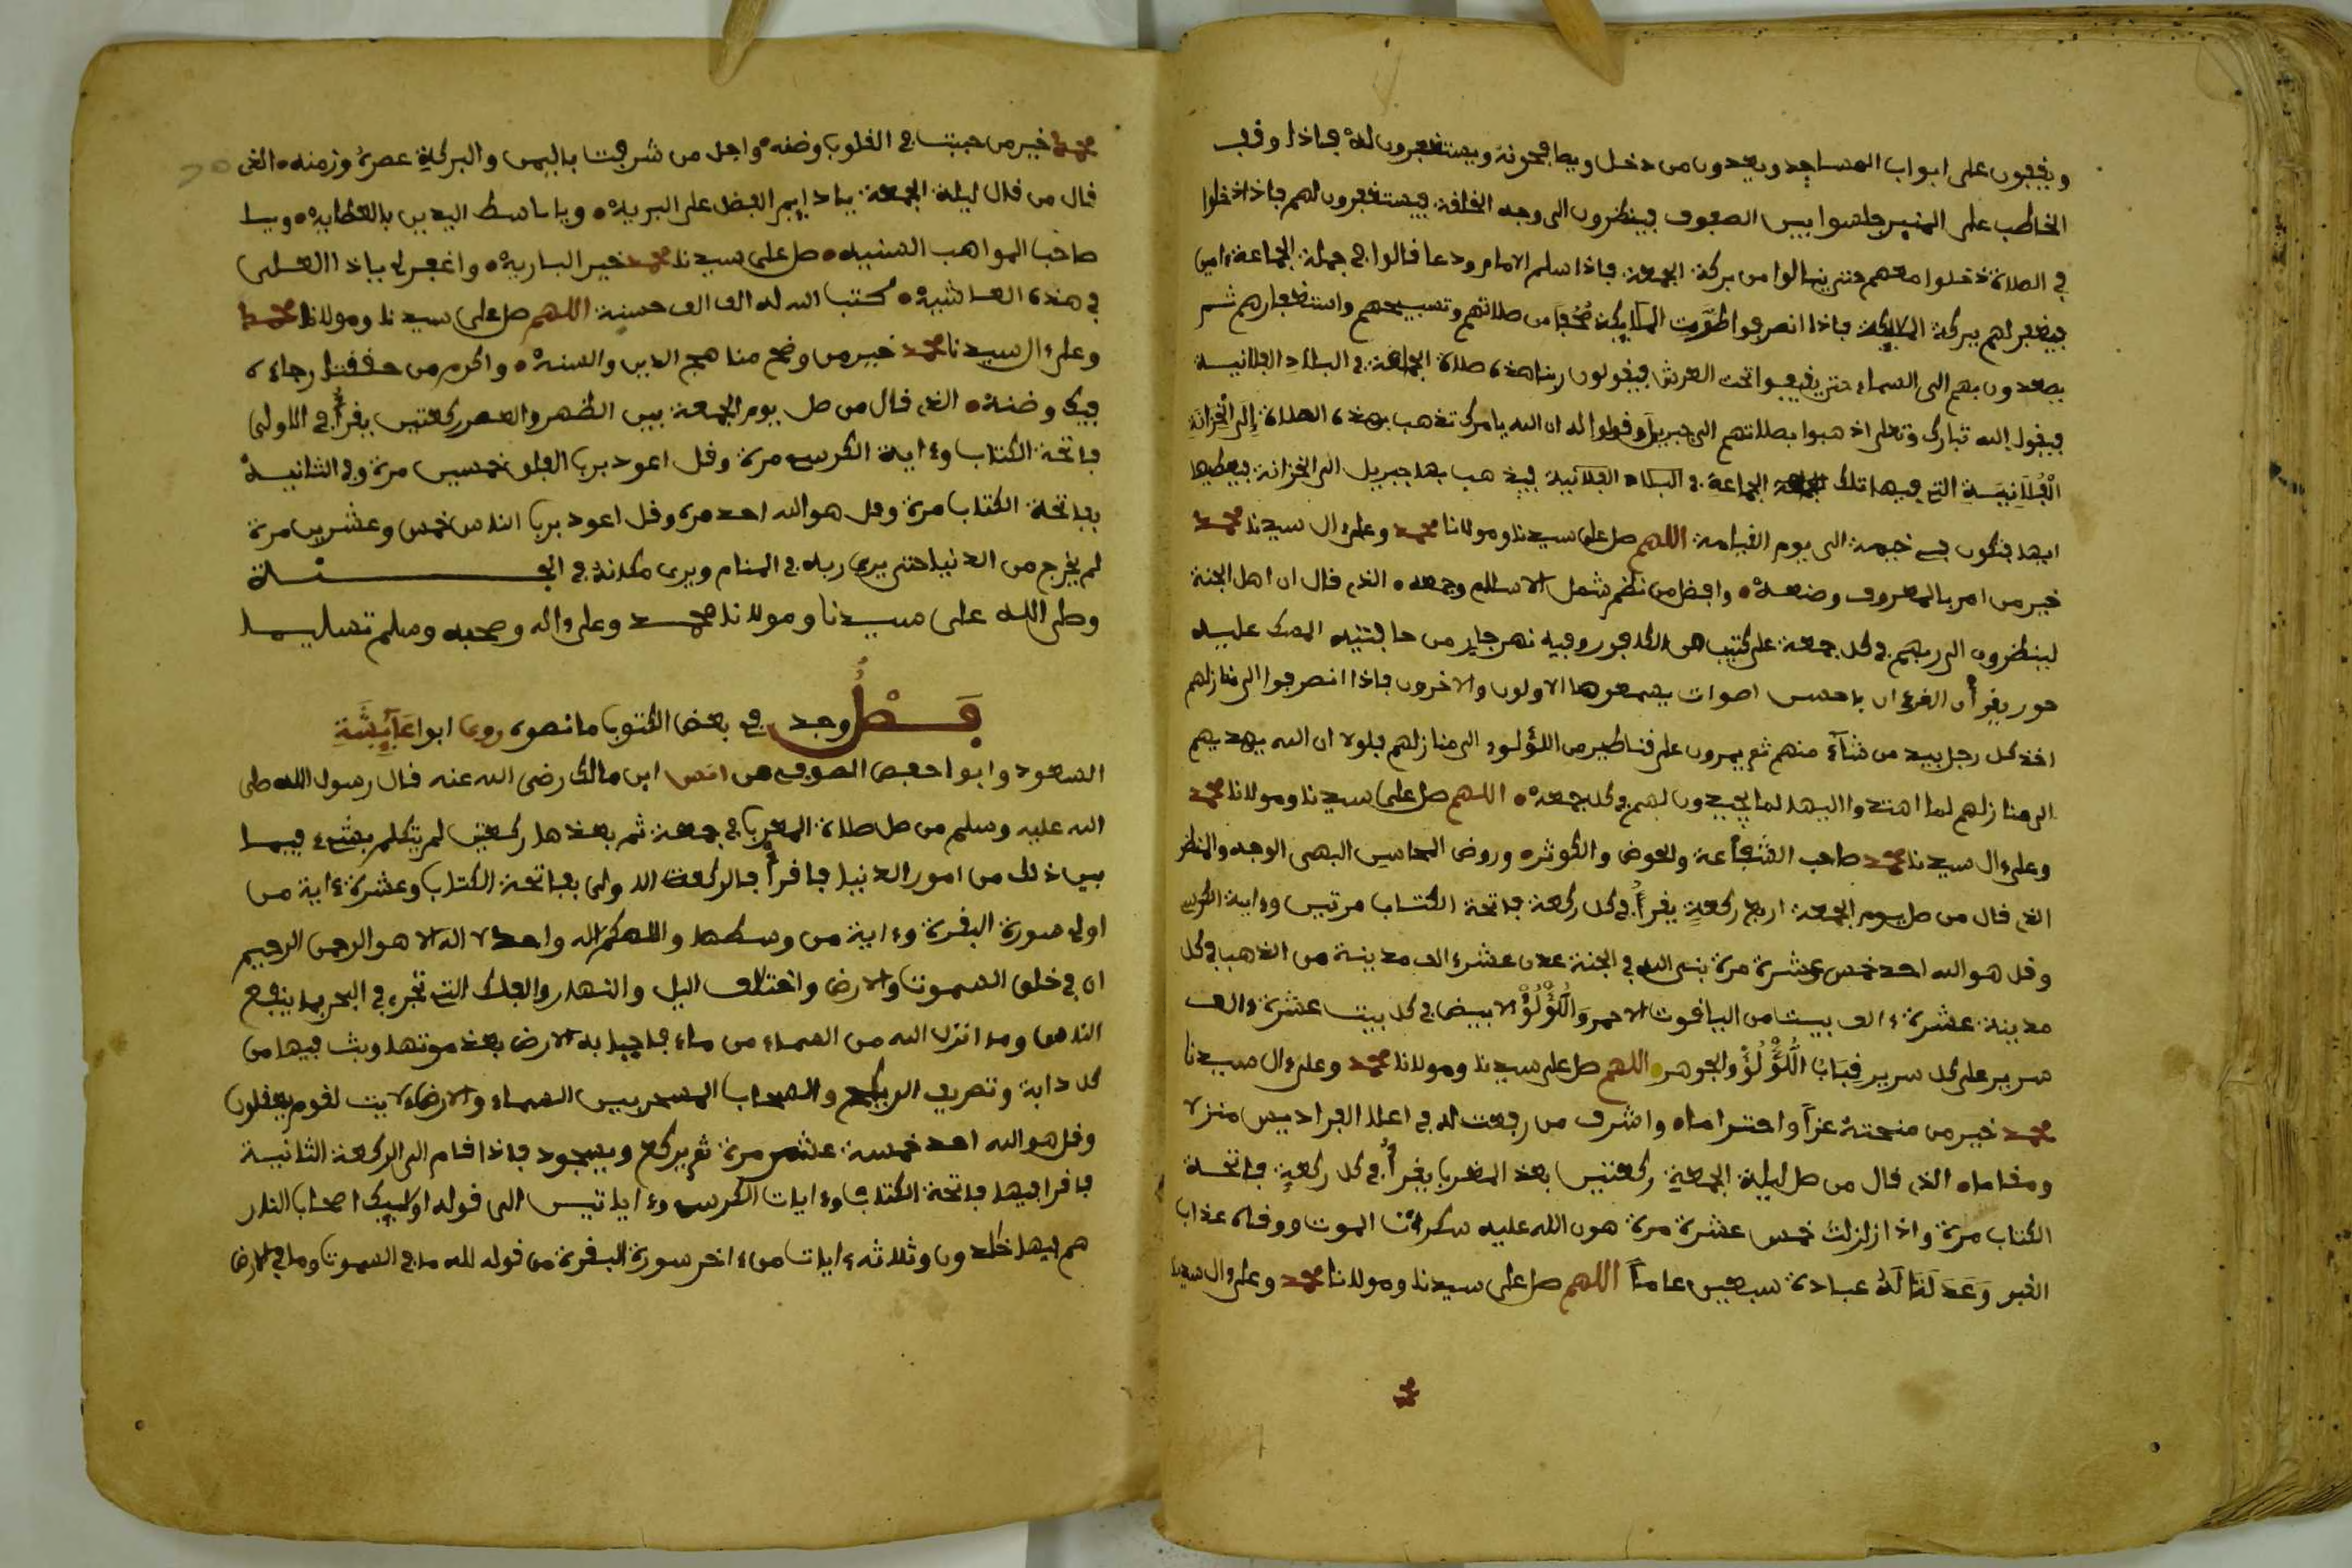 ويقفون على ابواب المساجد ويعدون من دخل ويصافحونه ويستغفرون له فاذا وقف
الخاطب على المنبر جلسوا بين الصفوف فينظرون الى وجه الخلفة فيستغفرون لهم فاذا دخلوا
في الصلاة دخلوا معهم حتى ينالوا من بركة الجمعة فاذا سلم الامام ودعا قالوا في جملة الجماعة ءامين
فيغفر لهم ببركة الملايكة فاذا انصرفوا طَوَت الملايكة صُحُفا من صلاتهم وتسبيحهم واستغفارهم ثم
يصعدون بهم الى السماء حتى يقيموا تحت العرش فيقولون ربنا هذه صلاة الجماعة في البلاد الفلانية
فيقول الله تبارك وتعلى اذهبوا بصلاتهم الى جبريل وقولوا له ان الله يامرك تذهب بهذه الصلاة إِلَى الْخِزَانَةِ
الْفُلَانِيَةِ التي فيها تلك الجماعة في البلاد الفلانية فيذهب بها جبريل الى الخزانة فيعطيها
ايها فتكون في خيمة الى يوم القيامة اللهم صل على سيدنا ومولانا محمد وعلى ءال سيدنا محمد
خير من امر بالمعروف وضعه وافضل من نظم شمل الاسلم وجمعه الذي قال ان اهل الجنة
لينظرون الى ربهم في كل جمعة على كثيب من الكافور وفيه نهر جار من حافتيه المسك عليه
حور يقرأن القرءان باحسن اصوات يسمعوها الاولون والاخرون فاذا انصرفوا الى منازلهم
اخذ كل رجل بيد من شآء منهم ثم يمرون على قناطير من اللؤلؤ الى منازلهم فلولا ان الله يهديهم
الى منازلهم لما اهتدوا اليها لما يجيدون لهم في كل جمعة اللهم صل على سيدنا ومولانا محمد
وعلى ءال سيدنا محمد صاحب الشفاعة والحوض والكوثر وروض المحاسن البهي الوجه والمنظر
الذي قال من صل يوم الجمعة اربع ركعة يقرأ في كل ركعة فاتحة الكتاب مرتين وءاية الكرسي
وقل هو الله احد خمس عشرة مرة بنى الله في الجنة عدن عشرء الف مدينة من الذهب في كل
مدينة عشرة ءالف بيت من الياقوت الاحمر وَالُّلؤْلُؤْ الابيض في كل بيت عشرة ءالف
سرير على كل سرير قِبَابُ اللُّؤْلُؤْ والجوهر اللهم صل على سيدنا ومولانا محمد وعلى ءال سيدنا
محمد خير من منحته عزا واحتراماه واشرف من رفعت له في اعلا الفراديس منزلا
ومقاماه الذي قال من صل ليلة الجمعة ركعتين بعد المغرب يقرأ في كل ركعة فاتحة
الكتاب مرة واذا زلزلت خمس عشرة مرة هون الله عليه سكرات الموت ووقاه عذاب
القبر وَعَدَلَتَا لَهُ عبادة سبعين عاما اللهم صل على سيدنا ومولانا محمد وعلى ءال سيدنا
محمد
محمد خير من حببت في القلوب وضنه واجل من شرفت باليمن والبركة عصره وزمنه الذي
قال من قال ليلة الجمعة يا دايم الفضل على البرية ويا باسط اليدين بالعطاية ويا
صاحب المواهب السنيه صل على سيدنا محمد خير البارية واغفر لي ياذا العلى
في هذه العاشية كتب الله له الف الف حسنة اللهم صل على سيدنا ومولانا محمد
وعلى ءال سيدنا محمد خير من وضح مناهج الدين والسنه واكرم من حققت رجاءه
فيك وضنه الذي قال من صل يوم الجمعة بين الظهر والعصر ركعتين يقرأ في الاولى
فاتحة الكتاب وءاية الكرسي مرة وقل اعوذ برب الفلق خمسين مرة وفي الثانية
بفاتحة الكتاب مرة وقل هو الله احد مرة وقل اعوذ برب الناس خمس وعشرين مرة
لم يخرج من الدنيا حتى يرى ربه في المنام ويرى مكانه في الجنة
وصلى الله على سيدنا ومولانا محمد وعلى واله وصحبه وسلم تسليما
فَصْلُ وجد في بعض الكتوب ما نصوه روى ابوا عَآيِشَةِ
السعود وابوا حفص الصوفي عن انس ابن مالك رضى الله عنه قال رسول الله صلى
الله عليه وسلم من صل صلاة المغرب في جمعة ثم بعدها ركعتين لم يتكلم بشيء فيما
بين ذلك من امور الدنيا فاقرأ فالركعت الاولى بفاتحة الكتاب وعشرة ءاية من
اولى سورة البقرة وءاية من وسطها والاهكم اله واحد لا اله الا هو الرحمن الرحيم
ان في خلق السموت والارض واختلاف اليل والنهار والفلك التي تجري في البحر بما ينفع
الناس وما انزل الله من السماء من ماء فاحيا به الارض بعد موتها وبث فيها من
كل دابة وتصريف الرياح والسحاب المسخر بين السماء والارض لايت لقوم يعقلون
وقل هو الله احد خمسة عشر مرة ثم يركع ويسجود فاذا قام الى الركعة الثانية
فاقرا فيها فاتحة الكتاب وءايات الكرسي وءاياتين الى قوله اولايك اصحاب النار
هم فيها خالدون وثلاثه ءايات من ءاخر سورة البقرة من قوله لله ما في السموت وما في الارض